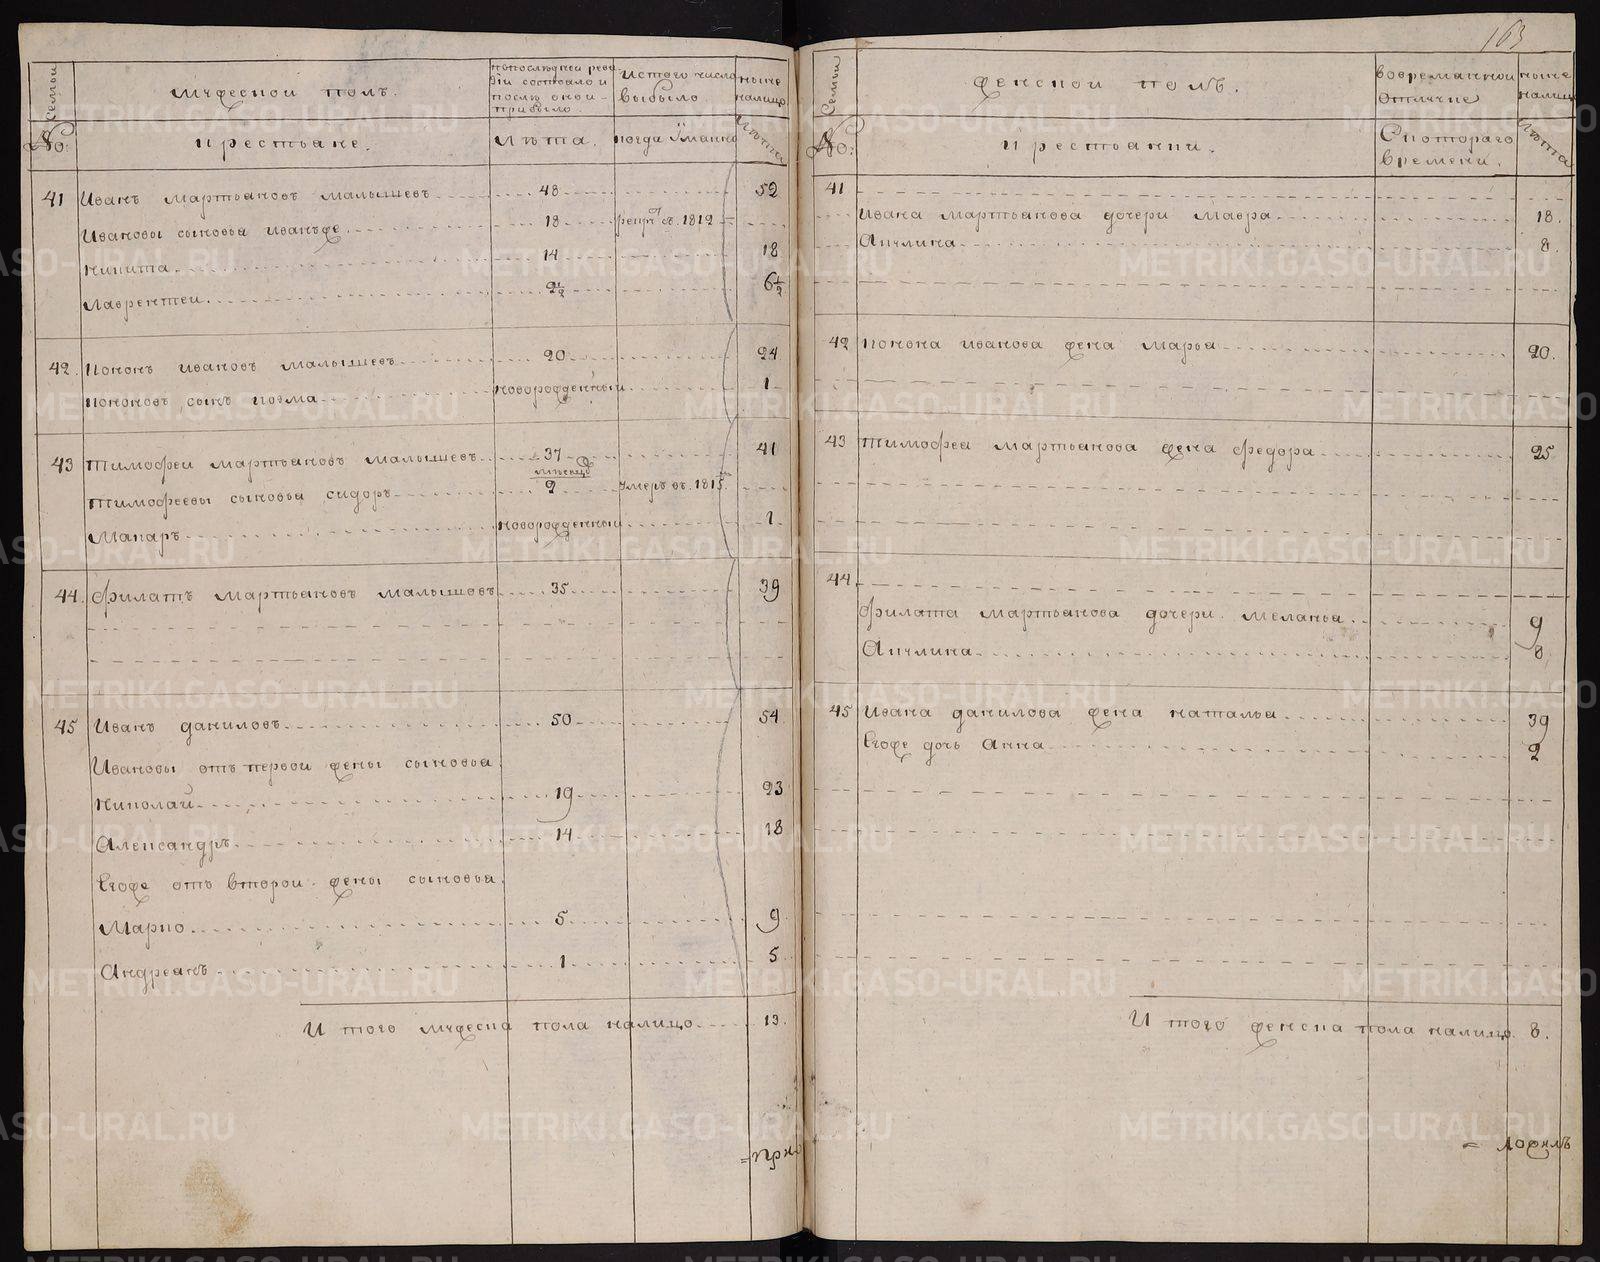 163
Семьи
мужескои полъ.
попоследнеи реви
зіи состояло и
после онои
прибыло
Истого число
выбыло
ныне
налицо
№:
крестьяне.
лѣта.
когда Имянно
лѣта
41 Иванъ мартьяновъ малышевъ 48 52
Ивановы сыновья иванъже 18 рекрутъ в. 1812
никита 14 18
Лаврентеи 2½ 6½
42. кононъ ивановъ малышевъ 20 24
кононовъ сынъ козма новорожденныи 1
43 тимофеи мартьяновъ малышевъ 37 41
месяцъ
тимофеевы сыновья сидоръ 2 умеръ въ. 1815.
Макаръ новорожденныи 1
44. филатъ мартьяновъ малышевъ 35 39
45 Иванъ даниловъ 50 54
Ивановы отъ первои жены сыновья
николаи 19 23
Александръ 14 18
Егоже отъ второи жены сыновья.
Марко 5 9
Андреянъ 1 5
И того мужеска пола налицо 13.
Семьи
женскои полъ.
вовременнои
отлучке
ныне
налицо
№:
крестьянки.
Скотораго
времени.
лѣта
41
Ивана мартьянова дочери мавра 18.
Акулина 8.
42 конона иванова жена марья 20.
43 тимофея мартьянова жена федора 25
44
филата мартьянова дочери меланья. 9
Акулина 8
45 Ивана данилова жена наталья 39
Егоже дочь Анна 2
И того женска пола налицо 8.